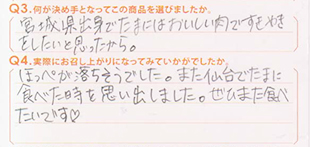 Q3.何が決め手となってこの商品を選びましたか。
宮城県出身でたまにはおいしい肉ですきやき
をしたいと思ったから。
Q4.実際にお召し上がりになってみていかがでしたか。
ほっぺが落ちそうでした。また仙台でたまに
食べた時を思い出しました。ぜひまた食べ
たいです♡